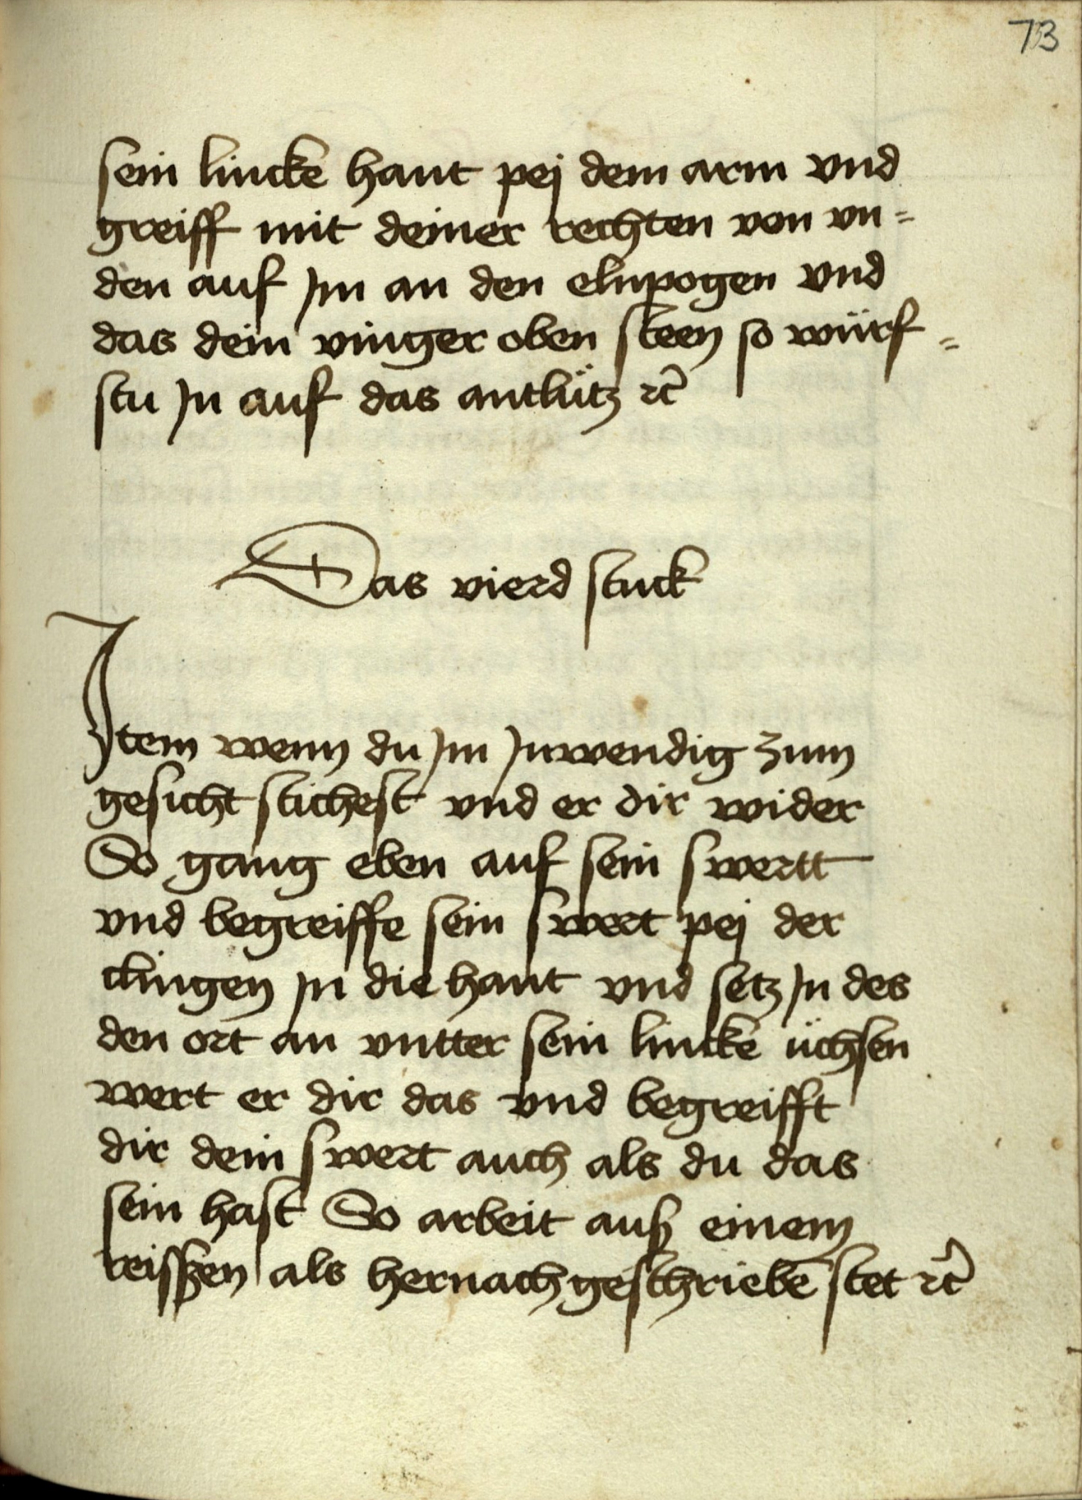 73
sein lincke hant pej dem arm vnd
greiff mit deiner rechten von vn=
den auf jm an den elnpogen vnd
das dein vinger oben steen so würf=
stu jn auf das antlütz ꝛc̃
Das vierd stuck
Jtem wenn du jm jnwendig zum
gesicht stichest vnd er dir wider
So gang eben auf sein swertt
vnd begreiffe sein swert pej der
clingen jn die hant vnd setz jn des
den ort an vntter sein lincke üchsen
wert er dir das vnd begreifft
dir dein swert auch als du das
sein hast So arbeit auß einem
reisszen als hernach geschriebẽ stet ꝛc̃